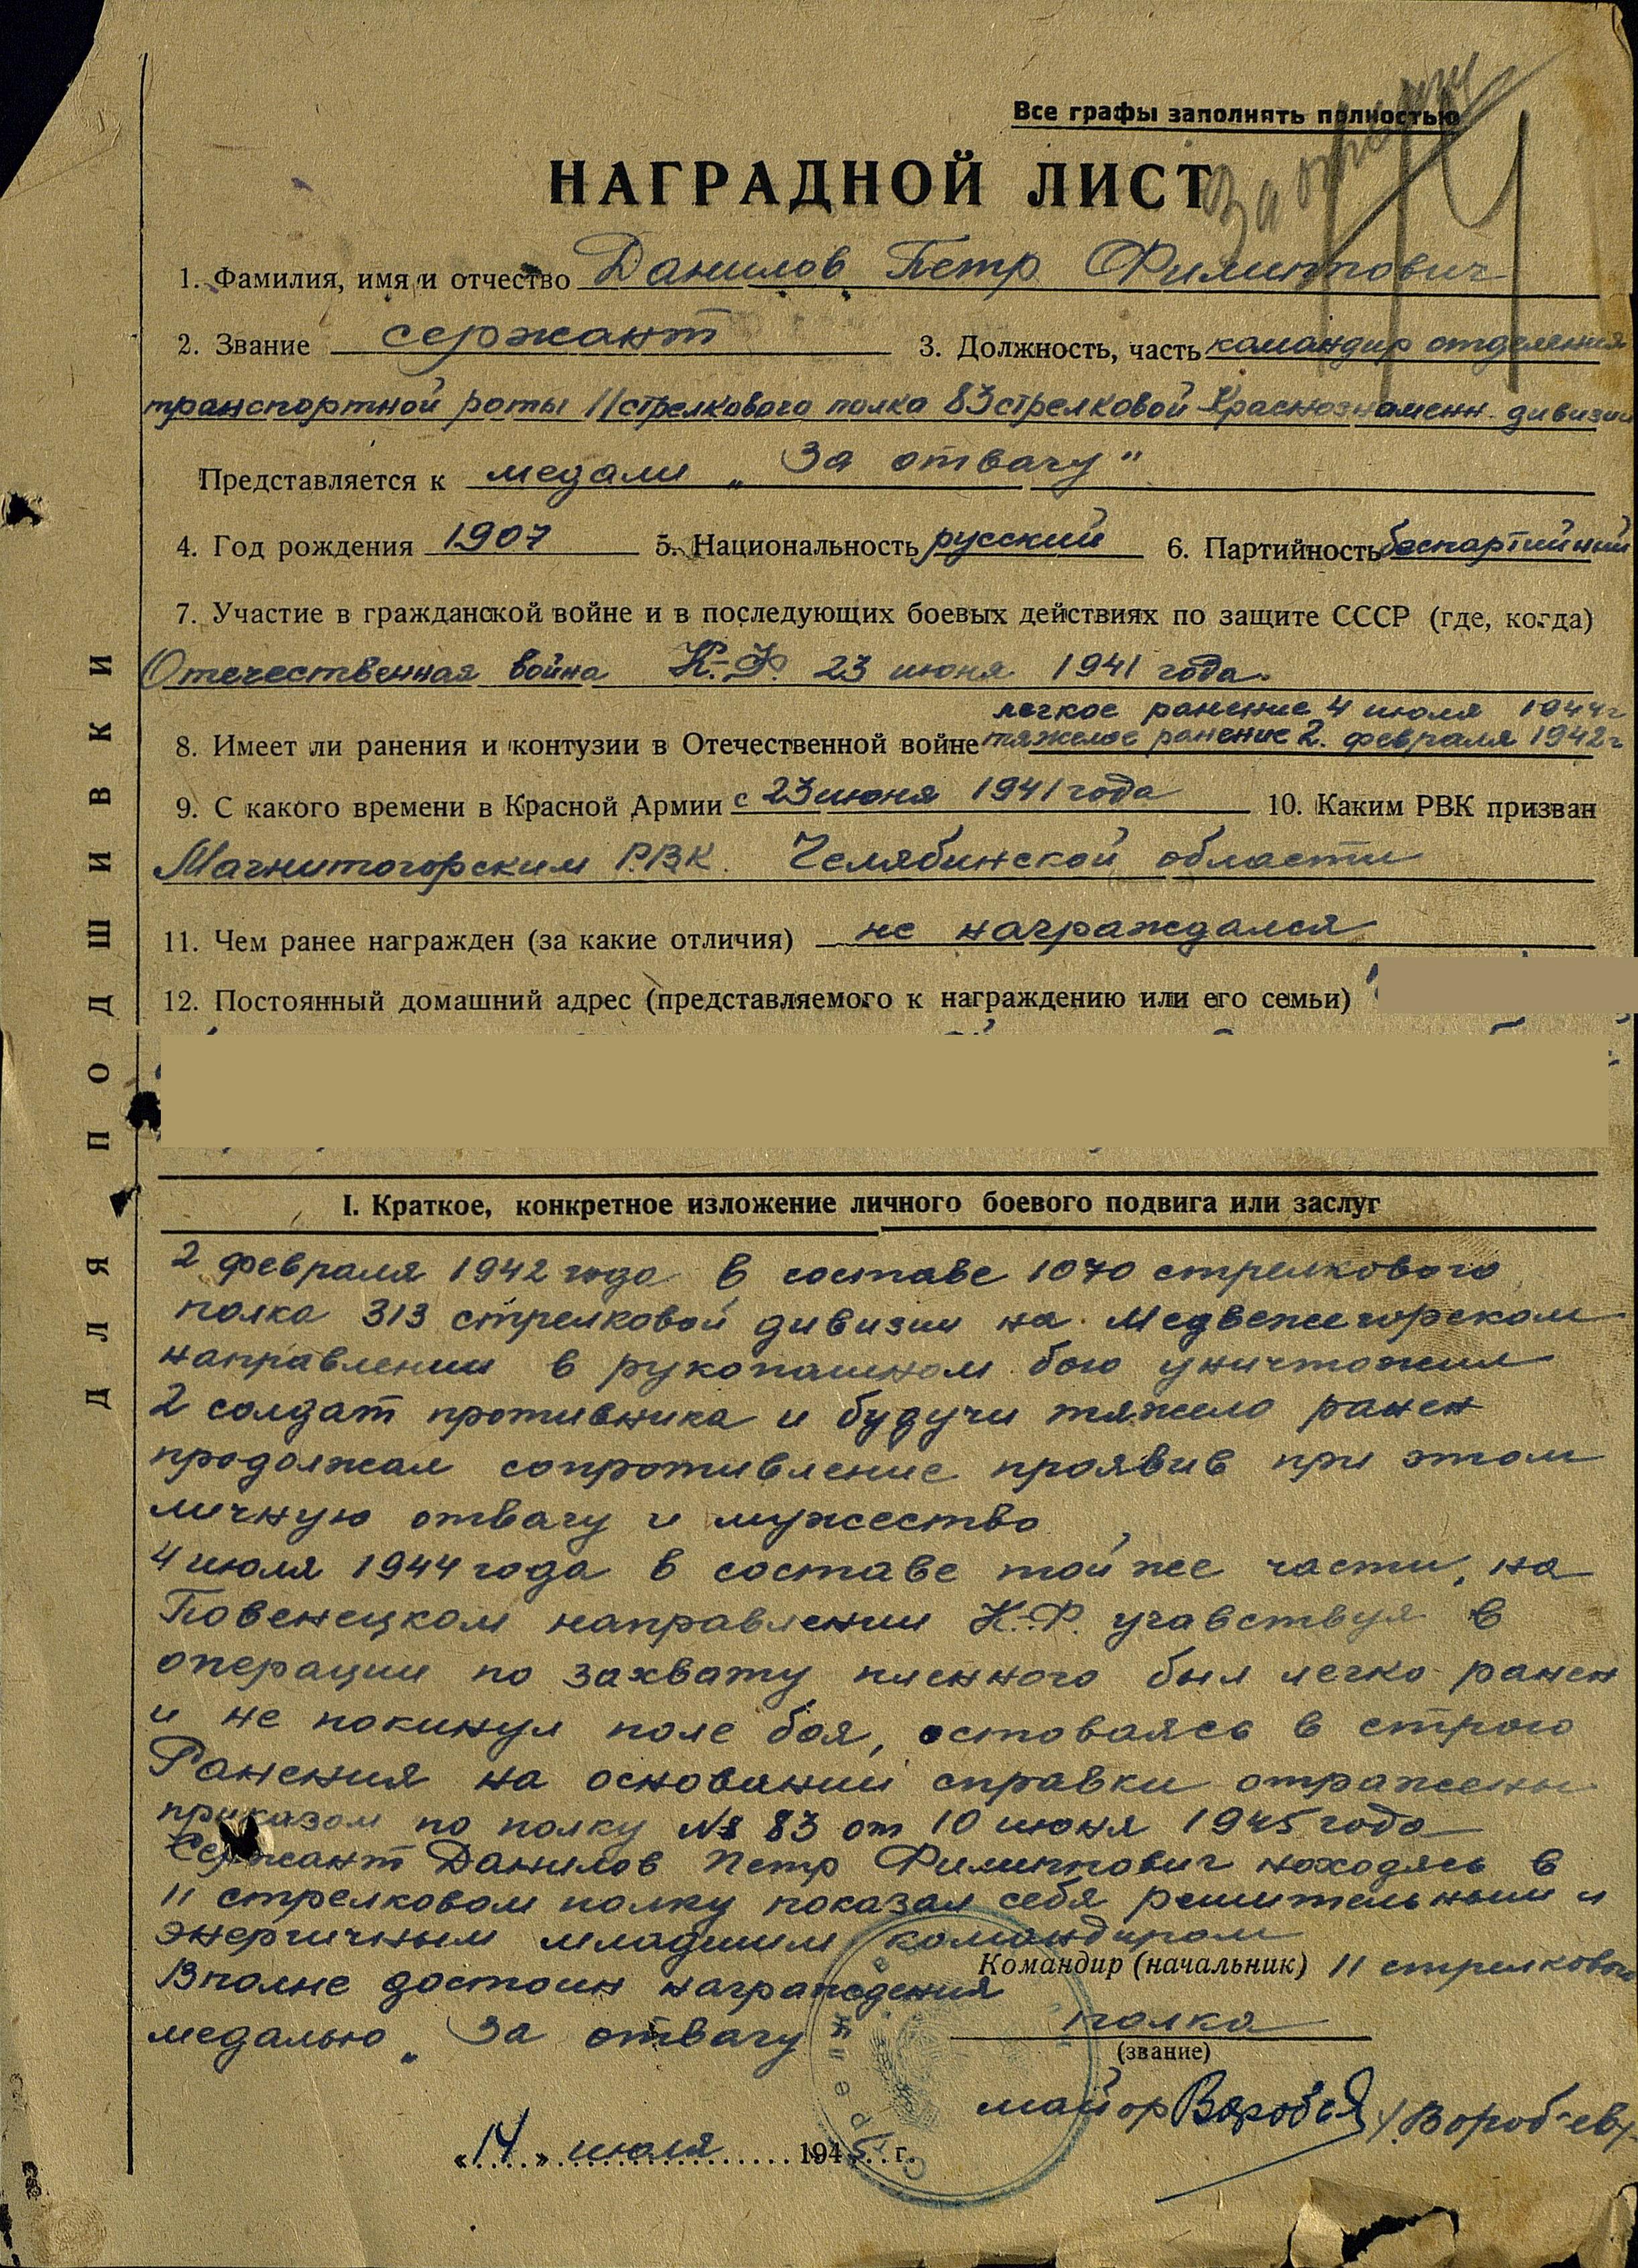 Все графы заполнять полностью
НАГРАДНОЙ ЛИСТ
За отвагу
1. Фамилия, имя и отчество Данилов Петр Филиппович
2. Звание сержант 3. Должность, часть командир отделения
транспортной роты 11 стрелкового полка 83 стрелковой Краснознаменн. дивизии
Представляется к медали „За отвагу"
4. Год рождения 1907 5. Национальность русский 6. Партийность беспартийный
7. Участие в гражданской войне и в последующих боевых действиях по защите СССР (где, когда)
Отечественная война К.-Ф. 23 июня 1941 года.
легкое ранение 4 июля 1944 г
8. Имеет ли ранения и контузии в Отечественной войне тяжелое ранение 2. февраля 1942 г
9. С какого времени в Красной Армии с 23 июня 1941 года 10. Каким РВК призван
Магнитогорским РВК. Челябинской области
11. Чем ранее награжден (за какие отличия) не награждался
12. Постоянный домашний адрес (представляемого к награждению или его семьи)
I. Краткое, конкретное изложение личного боевого подвига или заслуг
2 февраля 1942 года в составе 1070 стрелкового
полка 313 стрелковой дивизии на Медвежегорском
направлении в рукопашном бою уничтожил
2 солдат противника и будучи тяжело ранен
продолжал сопротивление проявив при этом
личную отвагу и мужество
4 июля 1944 года в составе той же части, на
Повенецком направлении К.-Ф. учавствуя в
операции по захвату пленного был легко ранен
и не покинул поле боя, остоваясь в строю
Ранения на основании справки отражены
приказом по полку № 83 от 10 июня 1945 года
Сержант Данилов Петр Филиппович находясь в
11 стрелковом полку показал себя решительным и
энергичным младшим командиром
Вполне достоин награждения
медалью „За отвагу
Командир (начальник) 11 стрелкового
полка
(звание)
майор Воробьев /Воробьев/
«14» июля 1945 г.
ДЛЯ ПОДШИВКИ